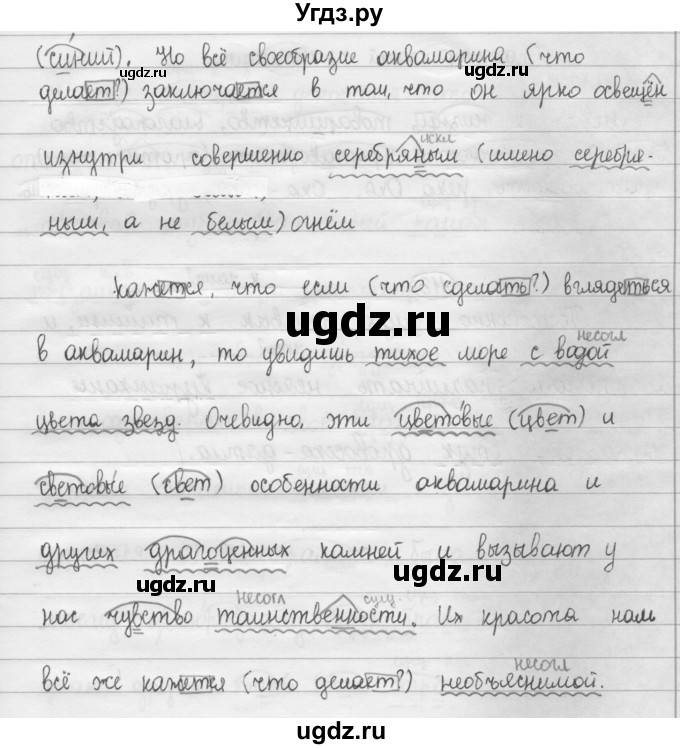 Угдз.ру
(синий). Но всё своеобразие аквамарина (что
ugdz.ru
делает?) заключается в том, что он ярко освещён
ugdz.ru
искл
изнутри совершенно серебряным (имено серебря-
ным, а не белым) огнём
кажется, что если (что сделать?) вглядеться
ugdz.ru
несогл
в аквамарин, то увидишь тихое море с водой
цвета звезд. Очевидно, эти цветовые (цвет) и
световые (свет) особенности аквамарина и
других драгоценных камней и вызывают у
ugdz.ru
ugdz.ru
несогл сущ.
нас чувство таинственности. Их красота нам
несогл
всё же кажется (что делает?) необъяснимой.
ugdz.ru
ugdz.ru